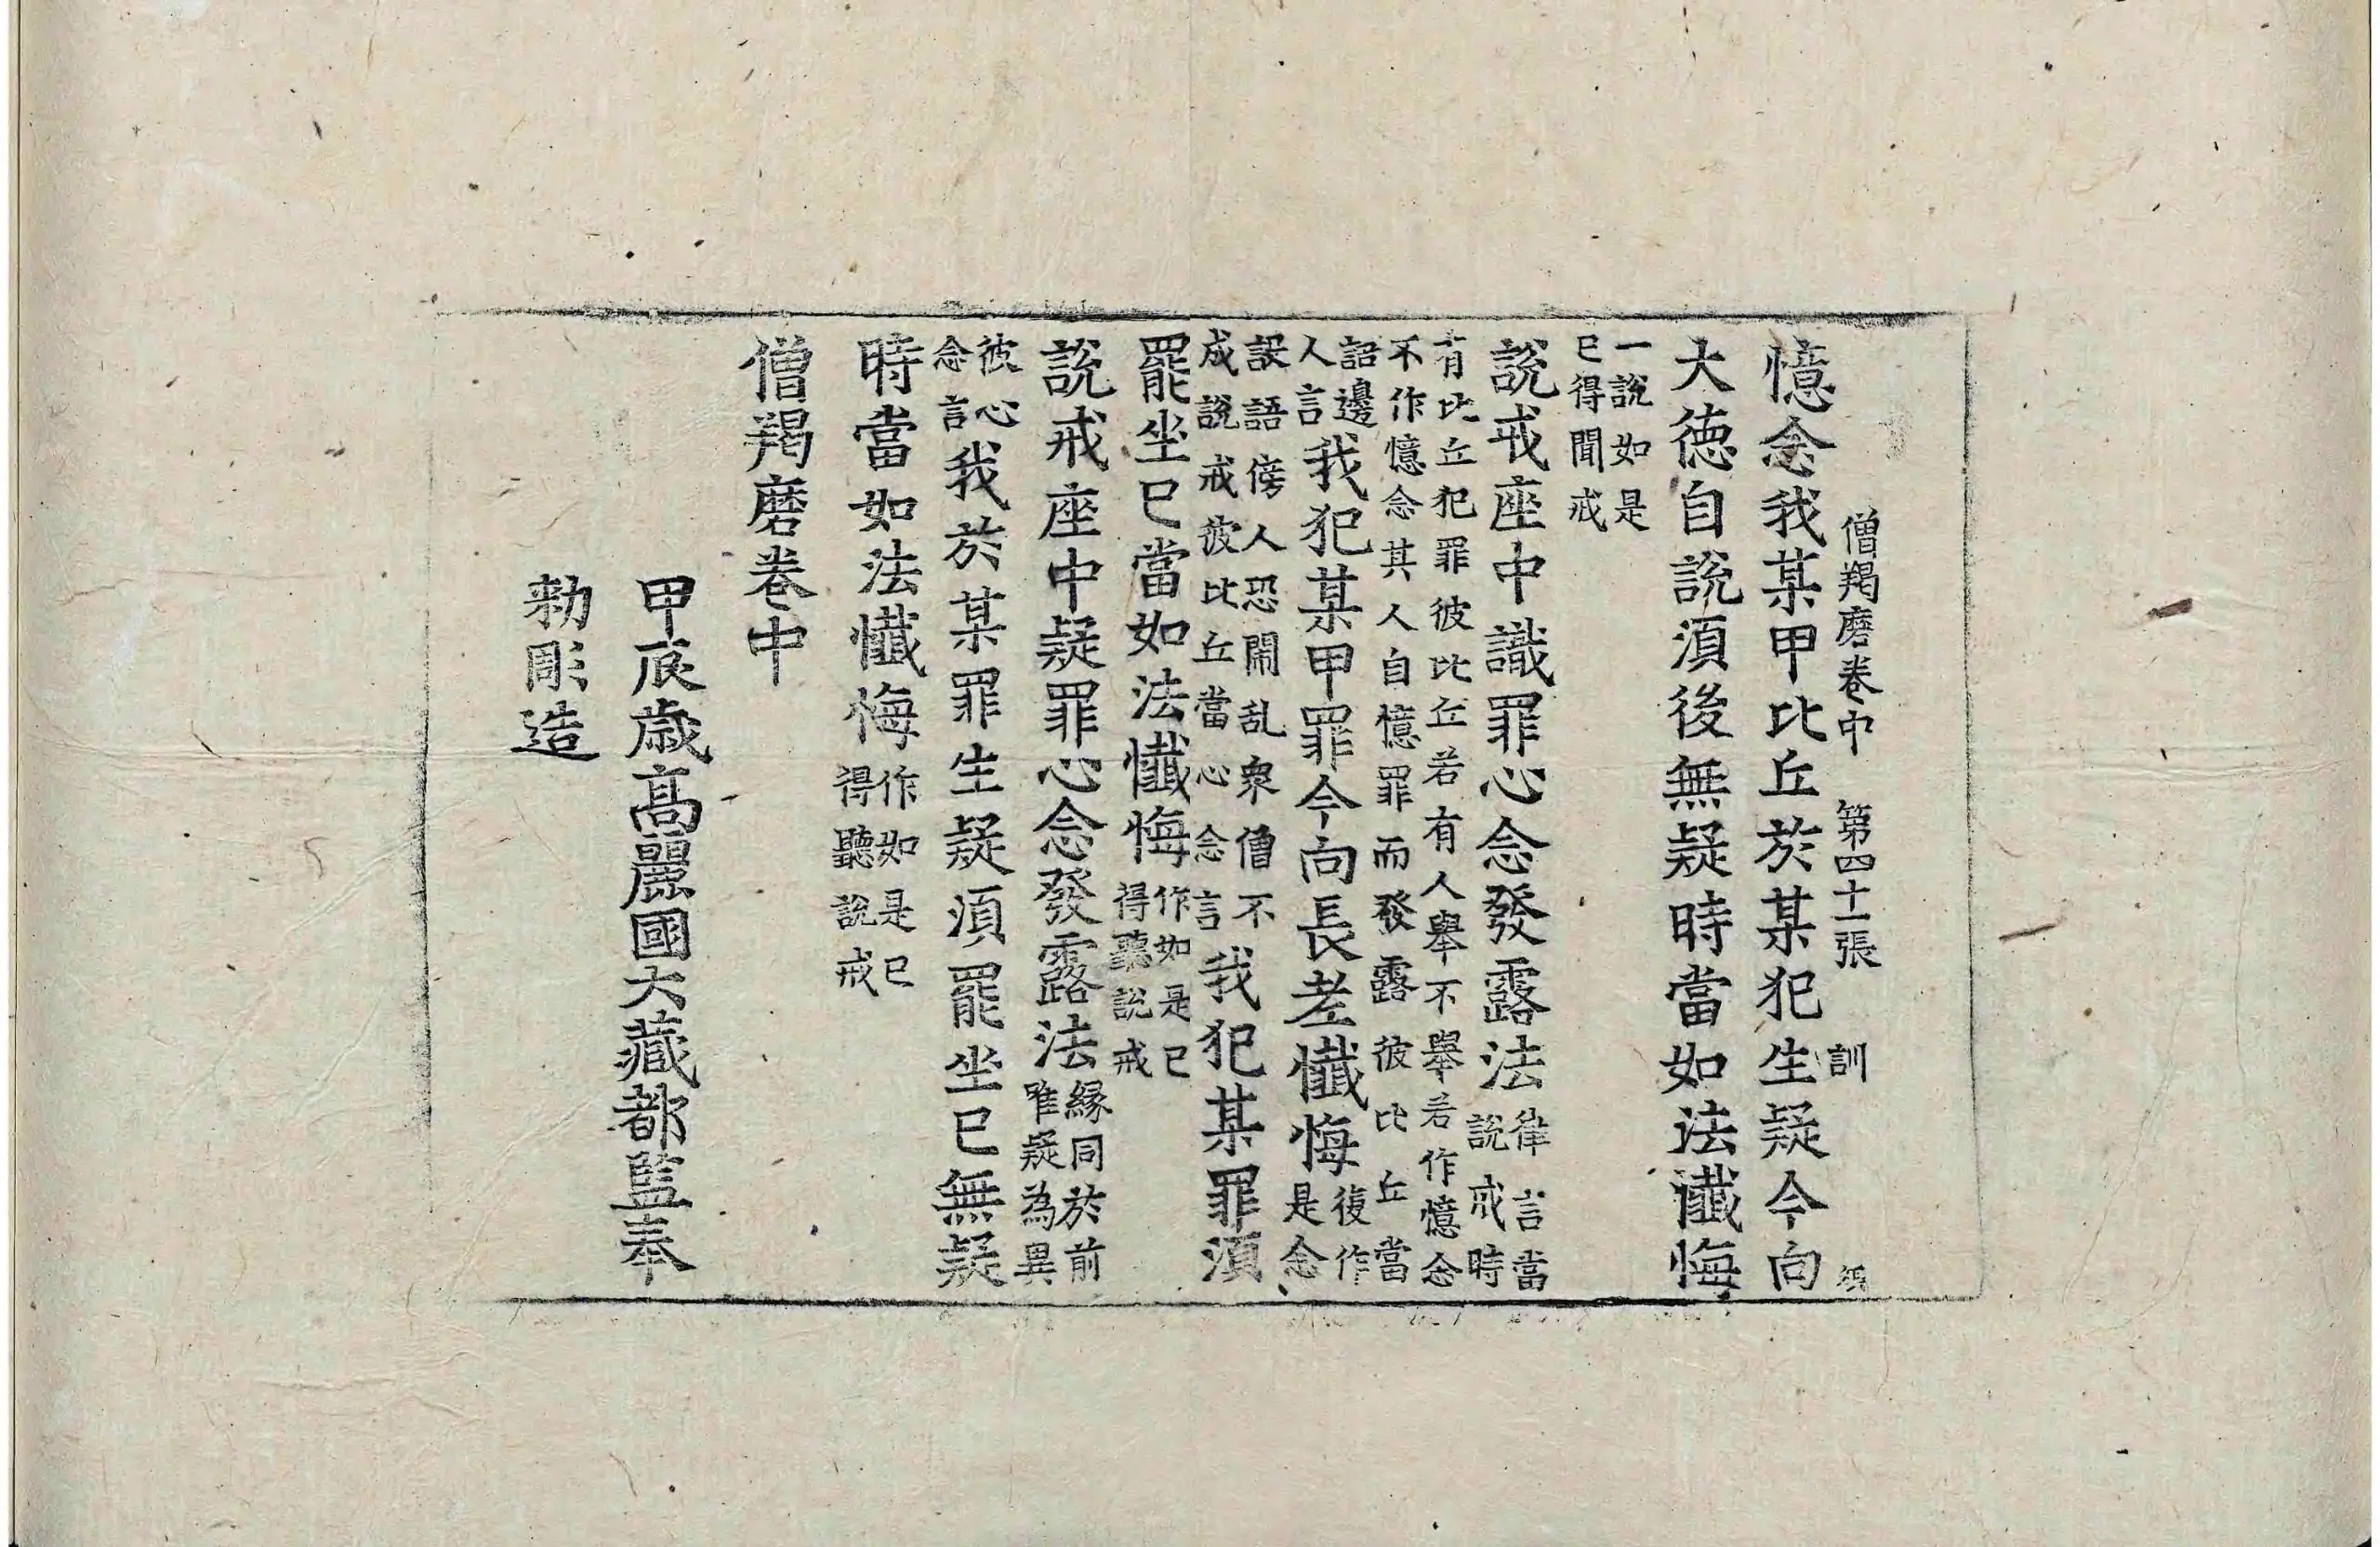 僧羯磨卷中　第四十一張　訓
憶念我某甲比丘於某犯生疑今向
大德自說須後無疑時當如法懺悔
一說如是
已得聞戒
說戒座中識罪心念發露法
律言當
說戒時
有比丘犯罪彼比丘若有人舉不舉若作憶念
不作憶念其人自憶罪而發露彼比丘當
詣邊
人言
我犯某甲罪今向長老懺悔
復作
是念
設語傍人恐鬧乱衆僧不
成說戒彼比丘當心念言
我犯某罪須
罷坐已當如法懺悔
作如是已
得聽說戒
說戒座中疑罪心念發露法
縁同於前
唯疑為異
彼心
念言
我於某罪生疑須罷坐已無疑
時當如法懺悔
作如是已
得聽說戒
僧羯磨卷中
甲辰歲高麗國大藏都監奉
勑彫造